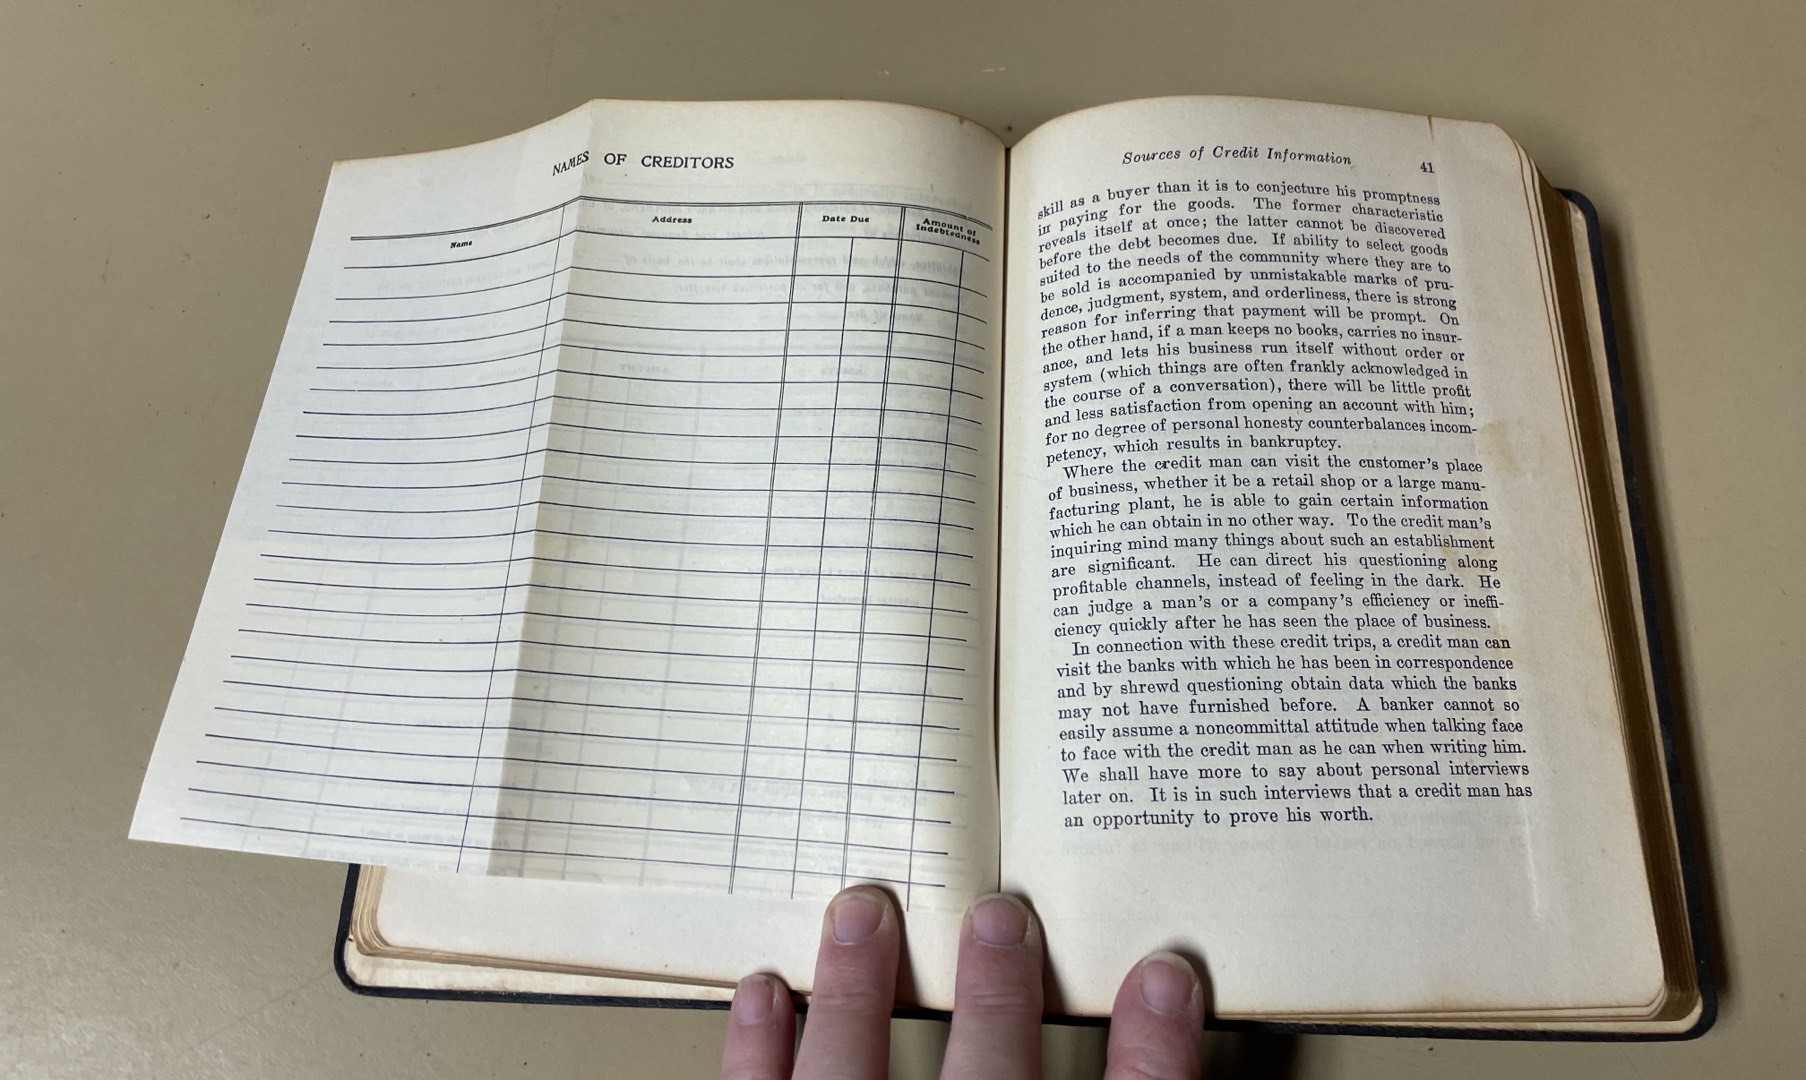 NAMES OF CREDITORS
Name
Address
Date Due
Amount of
Indebtedness
Sources of Credit Information 41
skill as a buyer than it is to conjecture his promptness
in paying for the goods. The former characteristic
reveals itself at once; the latter cannot be discovered
before the debt becomes due. If ability to select goods
suited to the needs of the community where they are to
be sold is accompanied by unmistakable marks of pru-
dence, judgment, system, and orderliness, there is strong
reason for inferring that payment will be prompt. On
the other hand, if a man keeps no books, carries no insur-
ance, and lets his business run itself without order or
system (which things are often frankly acknowledged in
the course of a conversation), there will be little profit
and less satisfaction from opening an account with him;
for no degree of personal honesty counterbalances incom-
petency, which results in bankruptcy.
Where the credit man can visit the customer's place
of business, whether it be a retail shop or a large manu-
facturing plant, he is able to gain certain information
which he can obtain in no other way. To the credit man's
inquiring mind many things about such an establishment
are significant. He can direct his questioning along
profitable channels, instead of feeling in the dark. He
can judge a man's or a company's efficiency or ineffi-
ciency quickly after he has seen the place of business.
In connection with these credit trips, a credit man can
visit the banks with which he has been in correspondence
and by shrewd questioning obtain data which the banks
may not have furnished before. A banker cannot so
easily assume a noncommittal attitude when talking face
to face with the credit man as he can when writing him.
We shall have more to say about personal interviews
later on. It is in such interviews that a credit man has
an opportunity to prove his worth.